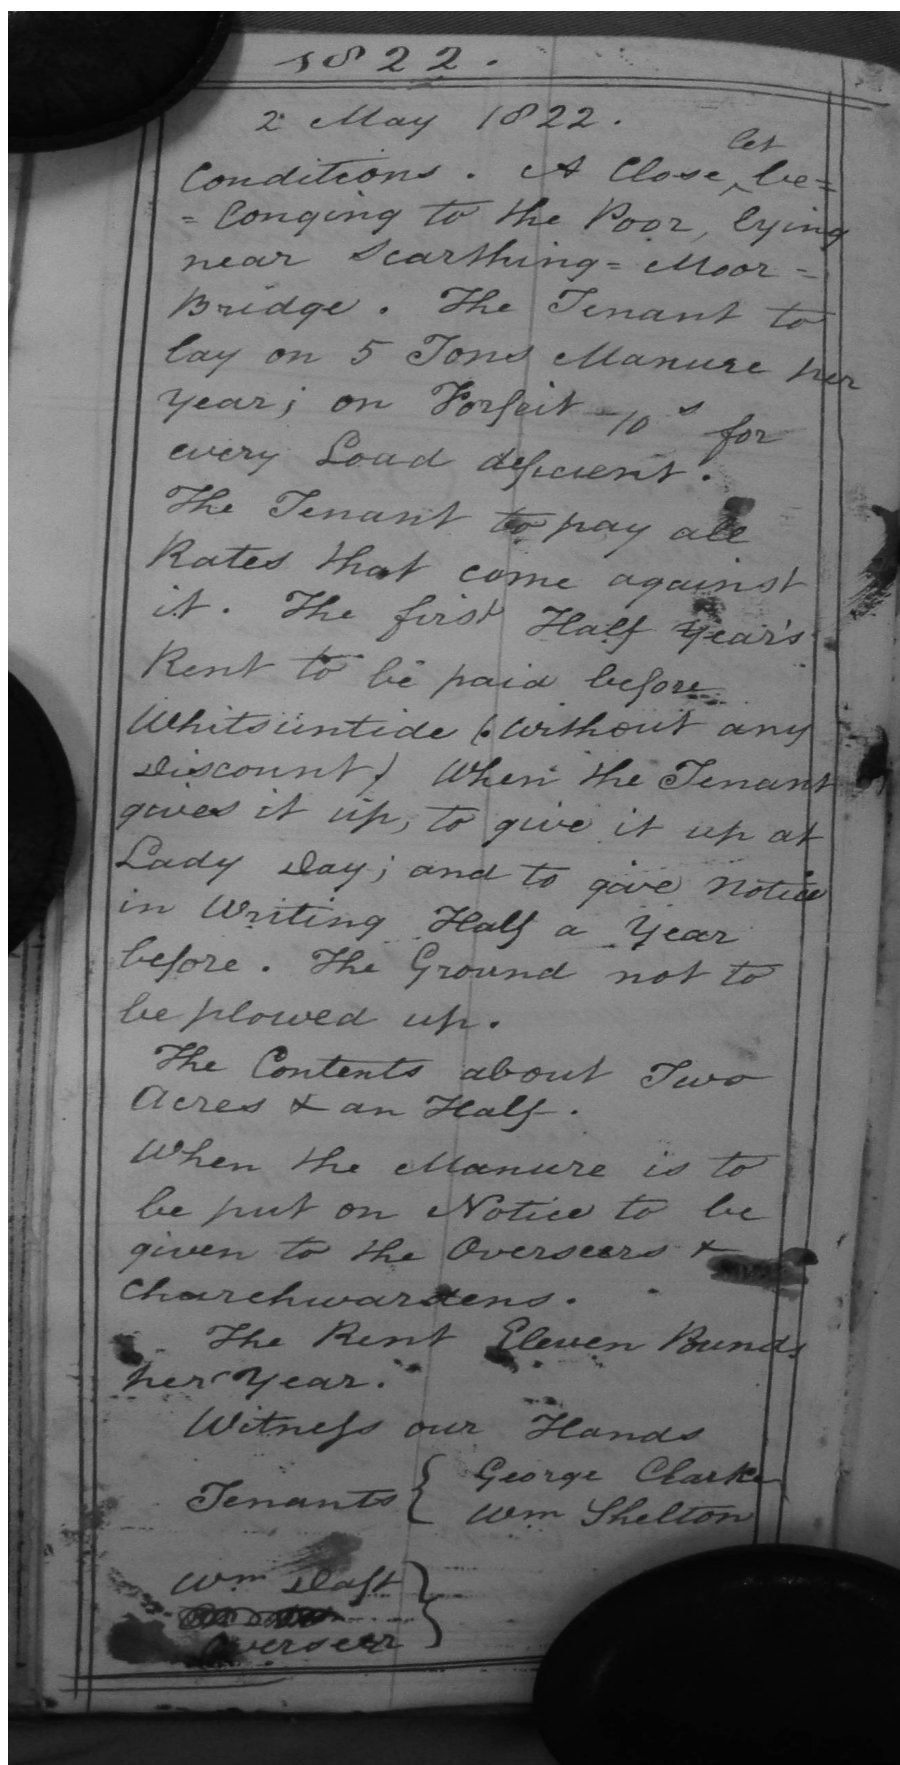 1822.
2 May 1822.
Conditions. A Close, let be=
= longing to the Poor, lying
near Scarthing= Moor =
Bridge. The Tenant to
lay on 5 Tons Manure per
year; on Forfeit 10 s for
every Load deficient.
The Tenant to pay all
Rates that come against
it. The first Half Year's
Rent to be paid before
Whitsuntide (without any
Discount) When the Tenant
gives it up, to give it up at
Lady Day; and to give Notice
in Writing Half a Year
before. The Ground not to
be plowed up.
The Contents about Two
Acres & an Half.
When the Manure is to
be put on Notice to be
given to the Overseers &
Churchwardens.
The Rent Eleven Punds
per Year.
Witness our Hands
Tenants { George Clarke
Wm Shelton
Wm Daft }
Overseer